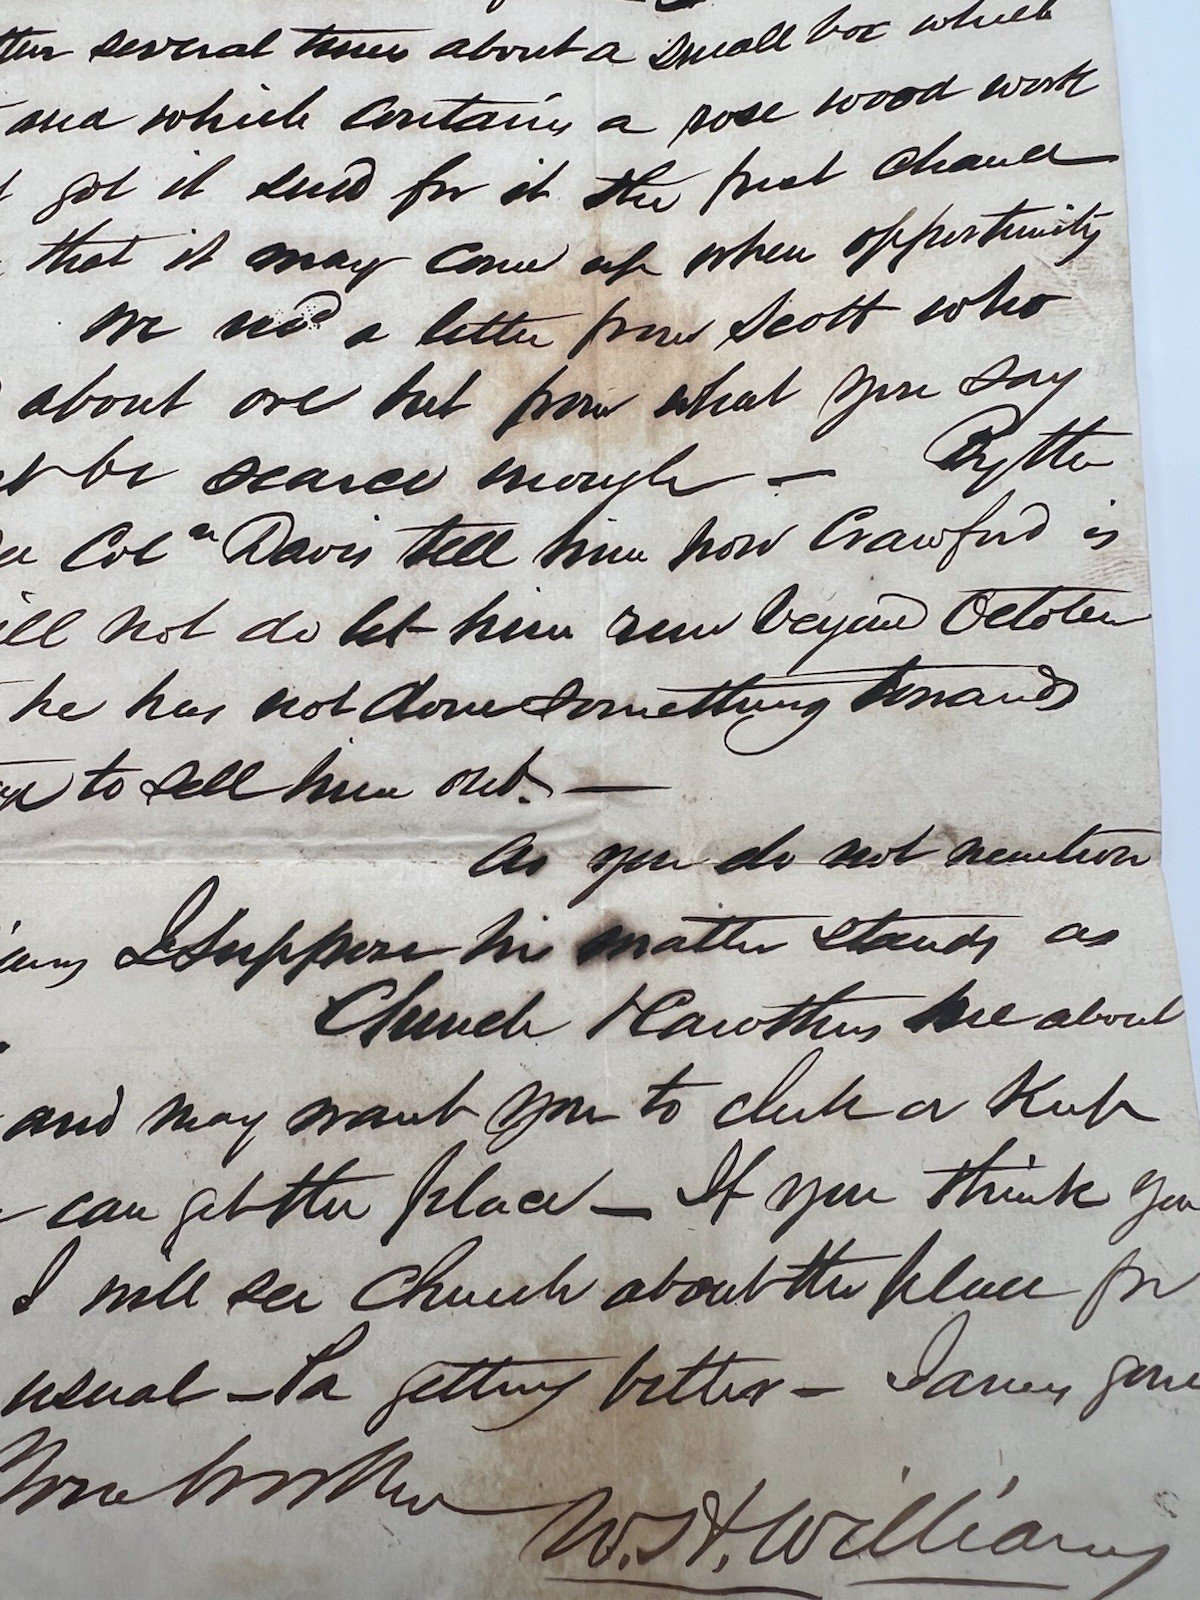 several times about a small box which
and which contains a rose wood work
got it send for it the first chance
that it may come up when opportunity
we recd a letter from Scott who
about ore but from what you say
be scarce enough —
Coln Davis tell him how Crawford is
ill not do let him run beyond October
he has not done something towards
to sell him out. —
As you do not mention
I suppose his matter stands as
Church & Cawthers are about
and may want you to clerk or keep
can get the place — If you think you
I will see Church about the place for
usual — Pa getting better — gone
Your brother
W. H. Williams